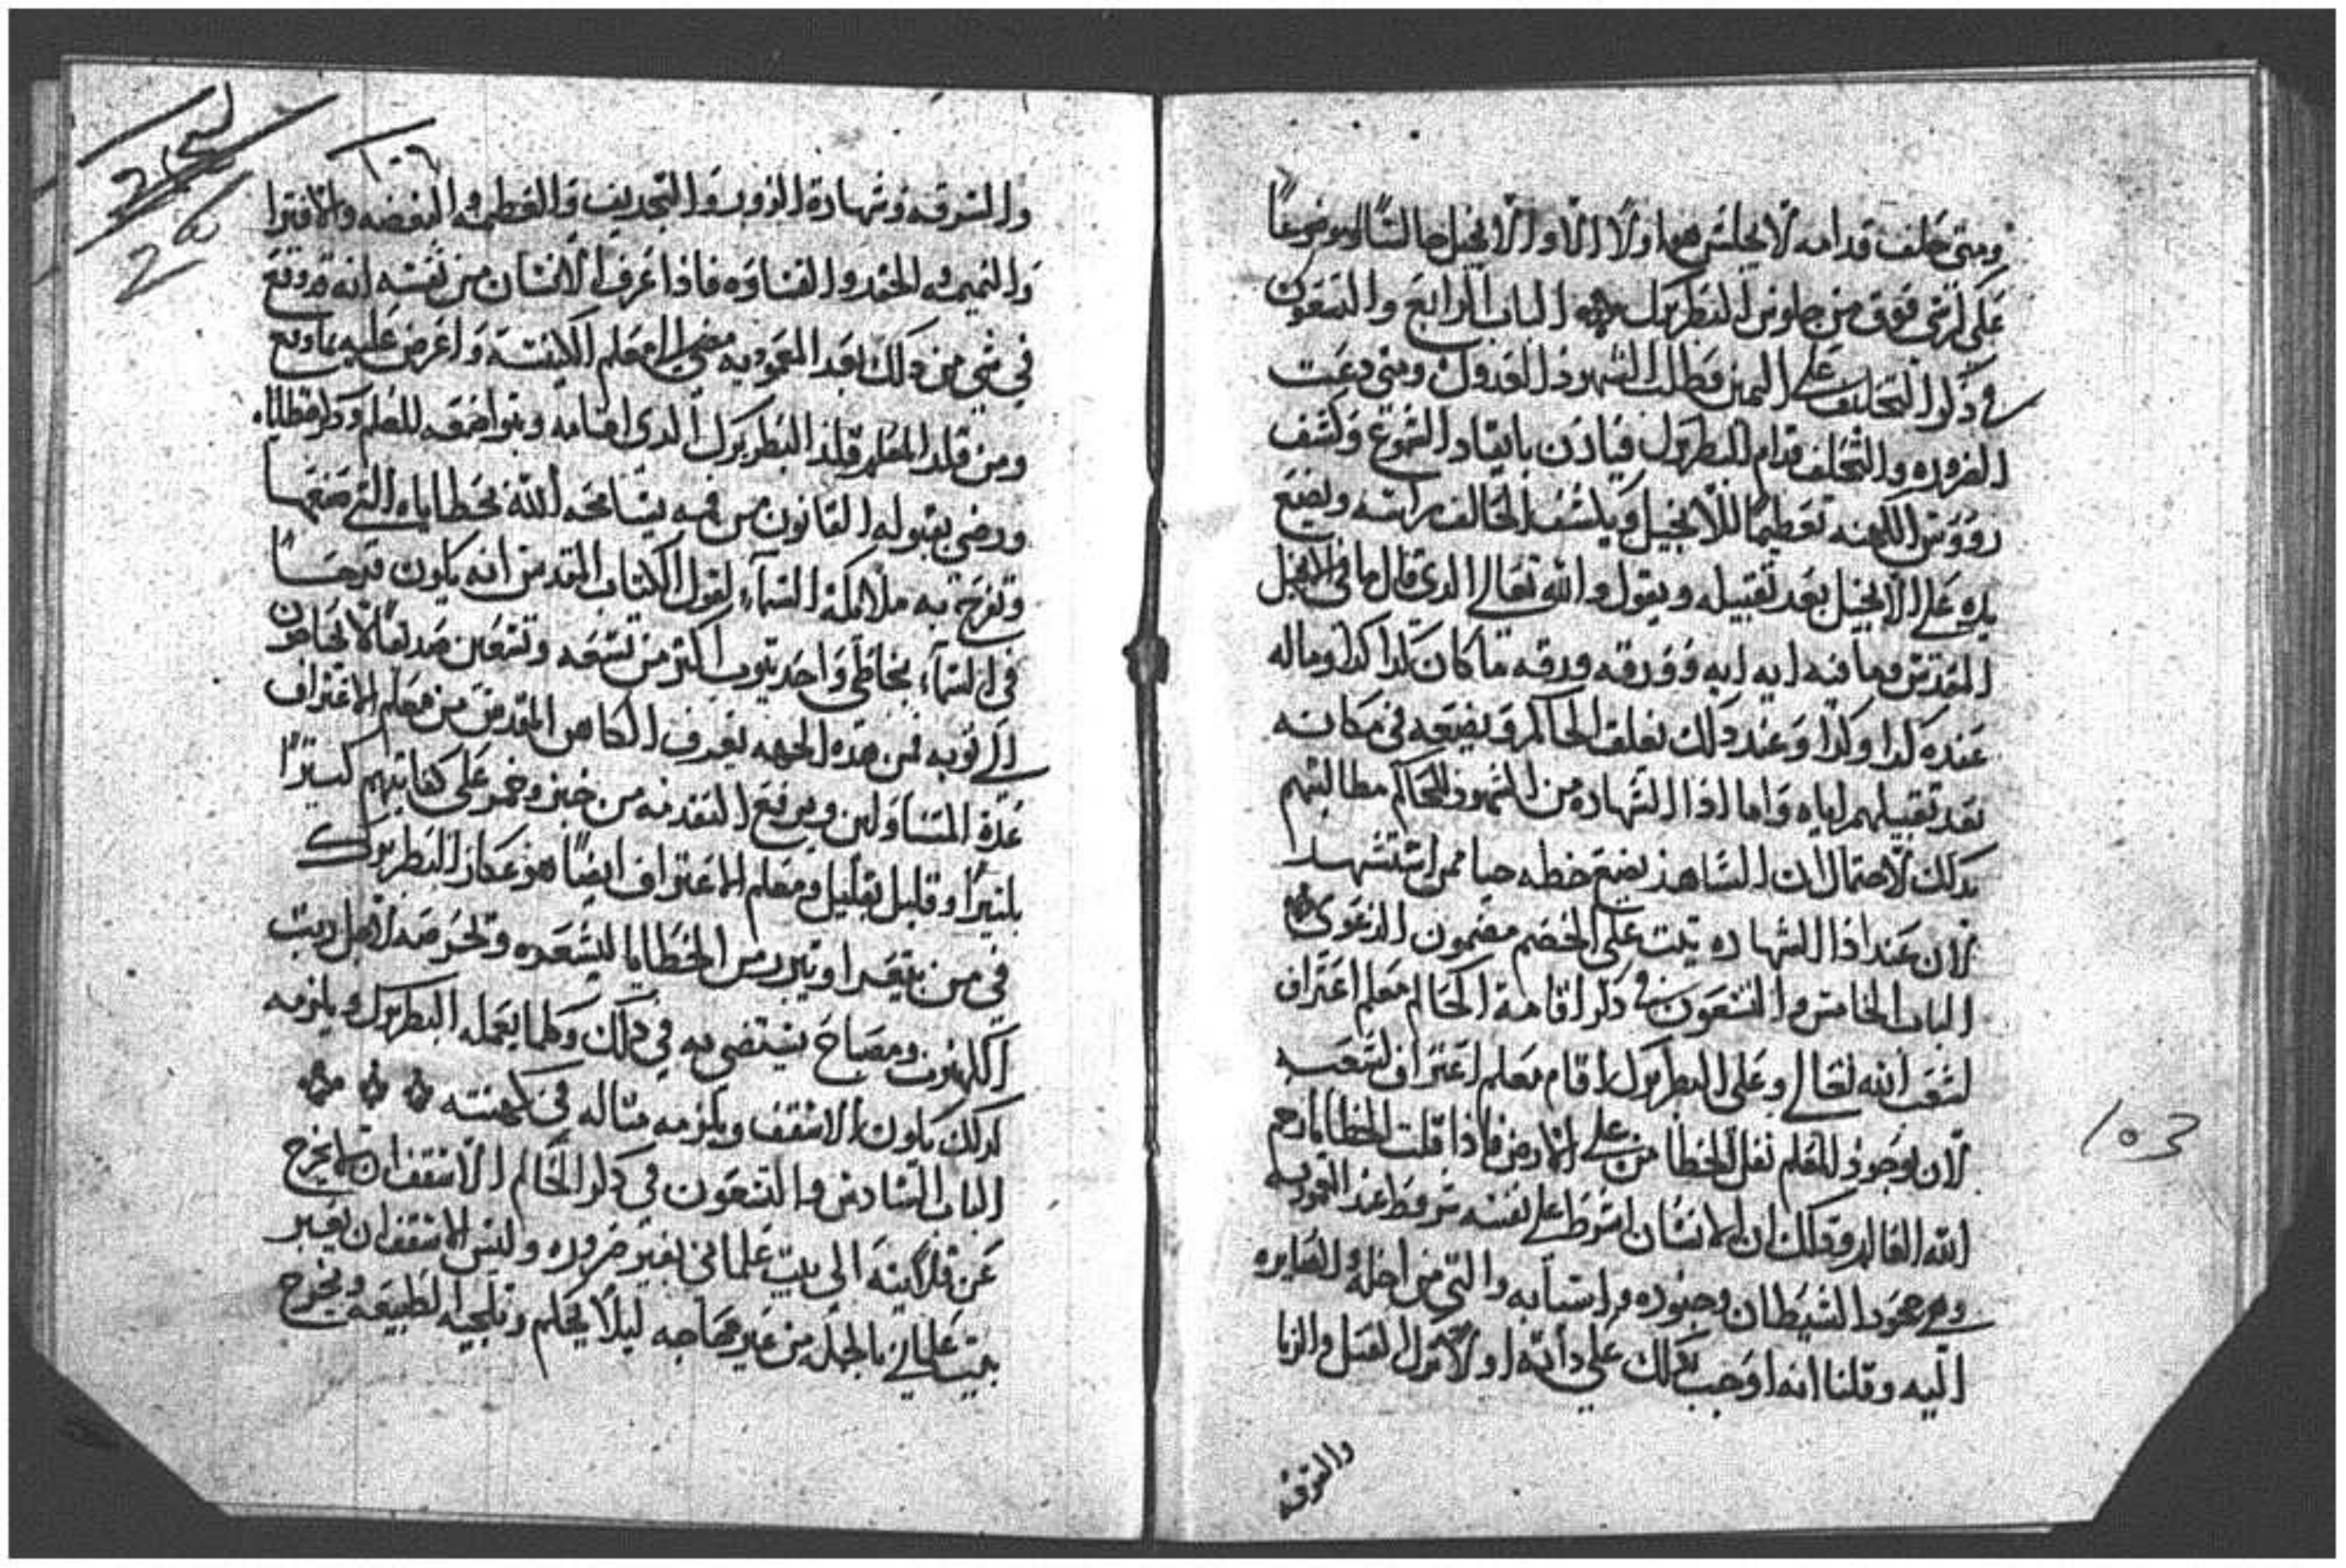 ومتى حلف قدامه لا يجلس هما ولا الا والانجيل جالسًا او موضوعًا
على كرسي فوق من جلوس البطريرك الباب الرابع والتسعون
في ذكر التحليف على اليمين وطلب الشهود العدول ومتى دعت
الضروره والتحلف قدام البطريرك فيادن بايقاد الشموع وكشف
رووس الكهنه تعظيمًا للانجيل ويكشف الحالف راسه ويضع
يده على الانجيل بعد تقبيله ويقول والله تعالى الدى قال ما في الانجيل
المقدس وما فيه ايه ايه وورقه ورقه ما كان كدا كدا وماله
عنده كدا وكدا وعند دلك يغلق الحاكم ويضعه في مكانه
بعد تقبيلهم اياه واما ادا الشهاده من الشهود للحاكم مطالبتهم
بدلك لاحتمال ان الشاهد يضع خطه حيا ممن استشهد
لان عند ادا الشهاده يثبت على الخصم مضمون الدعوى
الباب الخامس والتسعون في دكر اقامة الحاكم معلم اعتراف
لشعب الله تعالى وعلى البطريرك اقام معلم اعتراف لشعبه
لان بوجود المعلم تقل الخطا من على الارض فاذا قلت الخطايا رحم
الله العالم ودلك ان الانسان اشرط على نفسه شروط عند المعموديه
وهي جحود الشيطان وجنوده واسبابه والتى من اجله والصايره
اليه وقلنا انه اوجب بدلك على داته اولا ترك القتل والزنا
والسرقه
103
١٠٦
والسرقه وشهادة الزور والتجديف والعظمه والبغضه والافترا
والنميمه والحقد والقساوه فاذا عرف الانسان من نفسه انه قد وقع
في شي من دلك بعد المعموديه مضى الى معلم الكنيسة واعرض عليه ما وقع
ومن قلد المعلم قلد البطريرك الدى اقامه وبتواضعه للمعلم وذكر خطاياه
ورضى بقبوله القانون من فمه يسامحه الله بخطاياه التى صنعها
وتفرح به ملائكة السماء لقول الكتاب المقدس انه يكون فرحًا
في السماء بخاطي واحد يتوب اكتر من تسعه وتسعين صديقًا لا يحتاجون
الى توبه فمن هذه الجهه يعرف الكاهن المقدس من معلم الاعتراف
عدة المتناولين ويرفع التقدمه من خبز وخمر على كفايتهم كتيرًا
بكتيرًا وقليل بقليل ومعلم الاعتراف ايضًا هو عكاز البطريرك
في من يتعبد او يتبرر من الخطايا ليسعده وتحرصه لاجل ربت
الكهنوت ومصباح يستضى به في دلك وكلما يعمله البطريرك ويلزمه
كدلك يكون الاسقف ويلزمه مثاله في كهنته
الباب السادس والتسعون في دكر الحاكم الاسقف ان لا يخرج
عن قلايته الى بيت علمانى بغير ضروره وليس الاسقف ان يعبر
بيت علمانى بالجمله من غير حاجه ليلا يحكم وتلجيه الطبيعه ويخرج